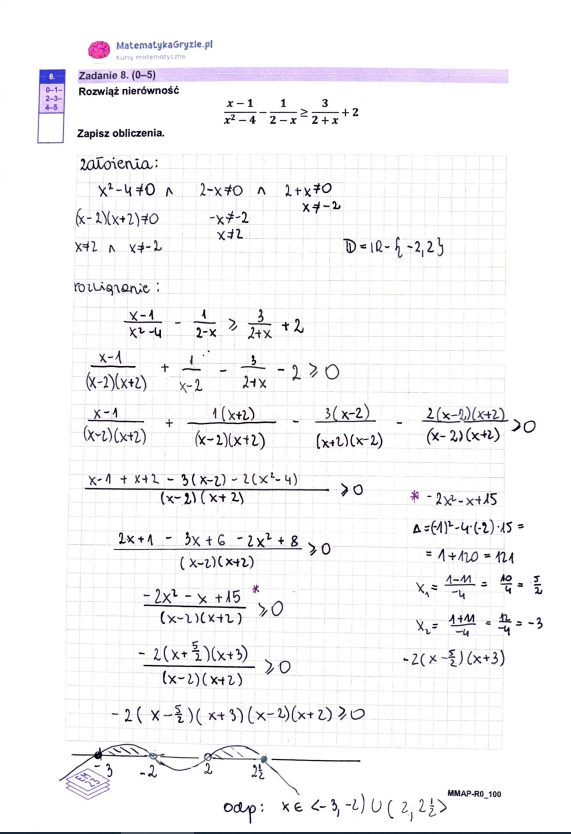 MatematykaGryzie.pl
kursy matematyczne
8.
0–1–
2–3–
4–5
Zadanie 8. (0–5)
Rozwiąż nierówność
(x − 1)/(x² − 4) − 1/(2 − x) ≥ 3/(2 + x) + 2
Zapisz obliczenia.
założenia:
x²-4≠0 ∧ 2-x≠0 ∧ 2+x≠0
(x-2)(x+2)≠0 -x≠-2 x≠-2
x≠2 ∧ x≠-2 x≠2 D=ℝ-{-2,2}
rozwiązanie:
(x-1)/(x²-4) - 1/(2-x) ≥ 3/(2+x) + 2
(x-1)/((x-2)(x+2)) + 1/(x-2) - 3/(2+x) - 2 ≥ 0
(x-1)/((x-2)(x+2)) + 1(x+2)/((x-2)(x+2)) - 3(x-2)/((x+2)(x-2)) - 2(x-2)(x+2)/((x-2)(x+2)) ≥ 0
(x-1 + x+2 - 3(x-2) - 2(x²-4))/((x-2)(x+2)) ≥ 0
(2x+1 - 3x+6 - 2x²+8)/((x-2)(x+2)) ≥ 0
(-2x² - x +15)/((x-2)(x+2)) * ≥ 0
-2(x+5/2)(x+3)/((x-2)(x+2)) ≥ 0
-2(x-5/2)(x+3)(x-2)(x+2) ≥ 0
* -2x²-x+15
Δ=(-1)²-4·(-2)·15 =
= 1+120 = 121
x₁ = (1-11)/-4 = 10/4 = 5/2
x₂ = (1+11)/-4 = 12/-4 = -3
-2(x-5/2)(x+3)
-3 -2 2 2½
MMAP-R0_100
odp: x∈<-3,-2)∪(2,2½>